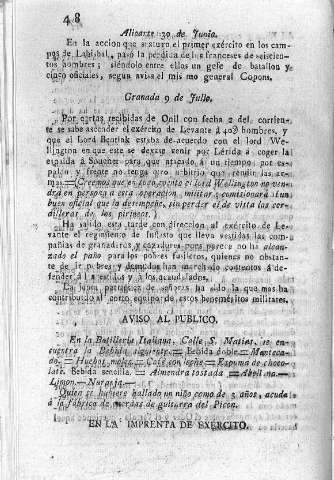 48
Alicante 30 de Junio.
En la accion que sostuvo el primer exército en los cam-
pos de Labisbal, pasó la perdida de los franceses de seiscien-
tos hombres; siendolo entre ellos un gefe de batallon y
cinco oficiales, segun avisa el mismo general Copons.
Granada 9 de Julio.
Por cartas recibidas de Onil con fecha 2 del corrien-
te se sabe ascender el exército de Levante á 40@ hombres, y
que el Lord Bentink estaba de acuerdo con el lord We-
lington en que este se dexase venir por Lérida á coger la
espalda á Souchet para que atacado á un tiempo por es-
palda y frente no tenga otro arbitrio que rendir las ar-
mas. = (Creemos que en todo evento el lord Welington no ven-
drá en persona á esta operacion militar, y comisionará á un
buen oficial que la desempeñe, sin perder él de vista las cor-
dilleras de los pirineos.)
Ha salido esta tarde con direccion al exército de Le-
vante el regimiento de Infiesto que lleva vestidas las com-
pañias de granaderos y cazadores pues parece no ha alcan-
zado el paño para los pobres fusileros, quienes no obstante
de ir pobres y desnudos han marchado contentos á de-
fender á la
La junta patriótica de señoras ha sido la que mas ha
contribuido al corto equipo de estos beneméritos militares.
AVISO AL PUBLICO.
En la Botilleria Italiana, Calle S. Matias, se en-
cuentra la Bebida siguiente = Bebida doble = Manteca-
do. = Café con leche = Espuma de choco-
late. Bebida sencilla. = Almendra tostada =
Limon. — Naranja. —
Quien se hubiere hallado un niño como de 3 años, acuda
á la fábrica de cuerdas de guitarra del Picon.
EN LA IMPRENTA DE EXÉRCITO.